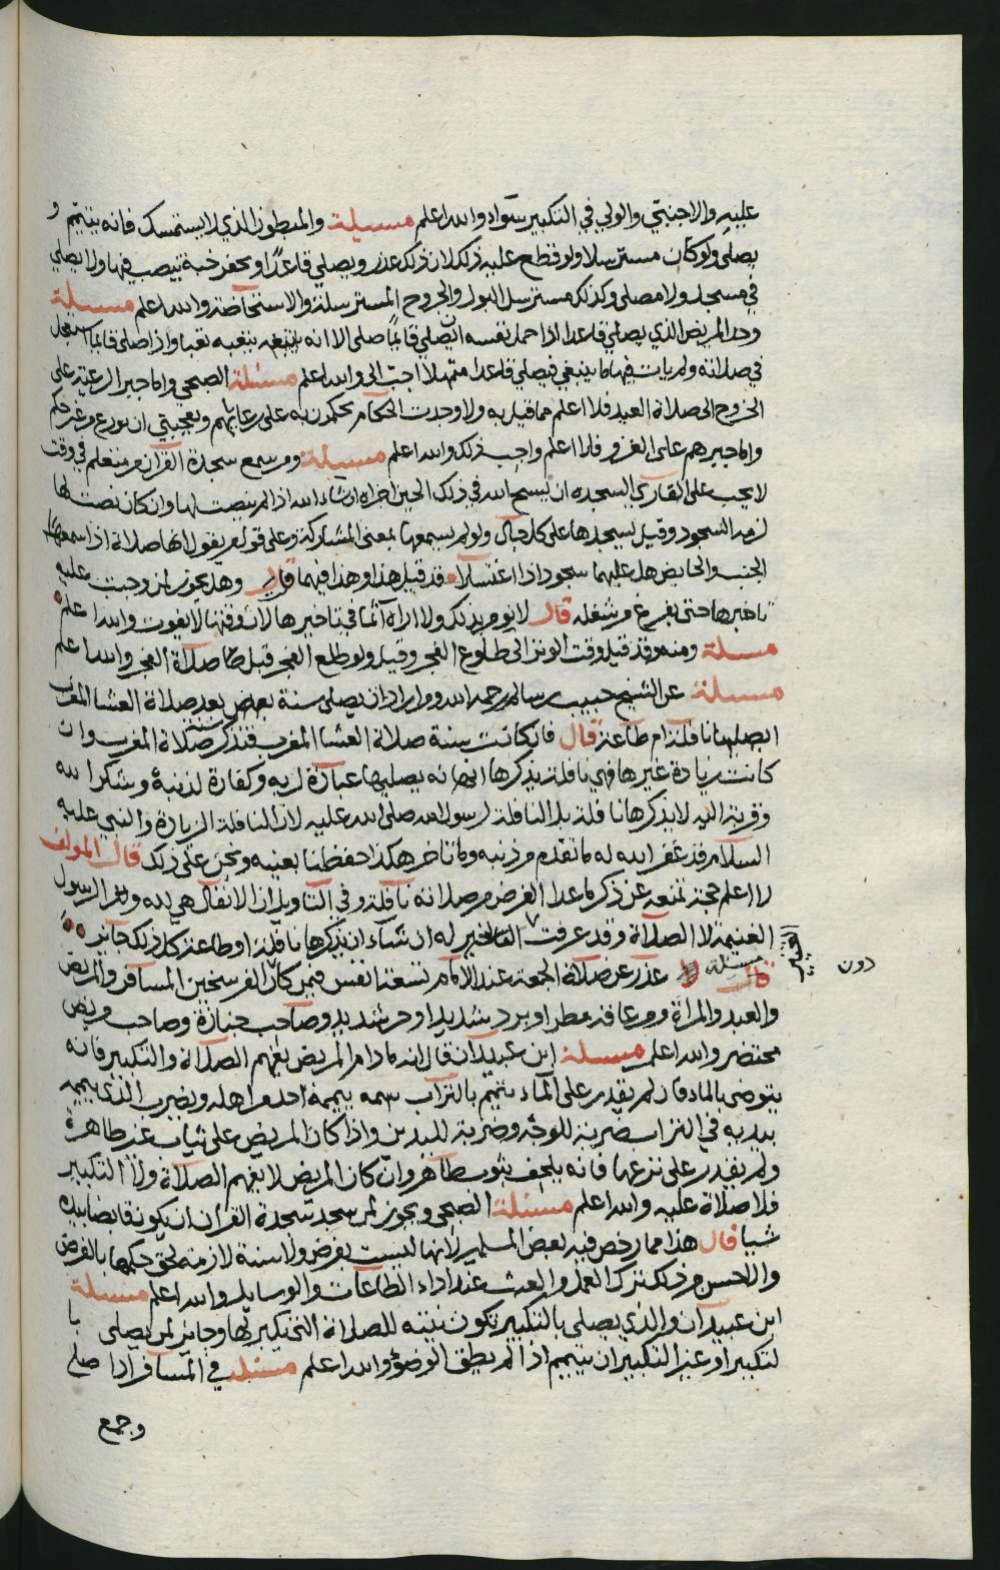 عليه والاجنبي والولي في التكبير سواء والله اعلم مسئلة والمبطون الذي لا يستمسك فانه يتيمم و
يصلي ولو كان مسترسلا ولو قطع عليه ذلك لان ذلك عذر ويصلي قاعدا او يحفر خبة يصب فيها ولا يصلي
في مسجد ولا مصلى وكذلك مسترسل البول والجروح المسترسلة والاستحاضة والله اعلم مسئلة
وحد المريض الذي يصلي قاعدا اذا حمل نفسه ان يصلي قايما صلى الا انه يتعبه تعبا واذا صلى قايما استعجل
في صلاته ولم يات فيها ما ينبغي فيصلي قاعدا متمهلا احب الي والله اعلم مسئلة الصبحي واما جبر الرعية على
الخروج الى صلاة العيد فلا اعلم مما قيل به ولا وجدت الحكام يحكمون به على رعاياهم ويعجبني ان
واما جبرهم على الغزو فلا اعلم واجب ذلك والله اعلم مسئلة ومن سمع سجدة القرآن من متعلم في وقت
لا يجب على القاري السجدة ان يسبح الله في ذلك الحين اجزاه ان شاء الله اذا لم ينصت لها وان كان نصت لها
لزمه السجود وقيل يسجدها على كل حال ولو لم يسمعها بمعنى المشاركة وعلى قول من يقول انها صلاة اذا سمعها
الجنب والحايض هل عليهما سجود اذا اغتسلا قد قيل هذا وهذا فيهما قال وهل يجوز لمن وجبت عليه
تاخيرها حتى يفرغ من شغله قال لا يومر بذلك ولا اراه آثما في تاخيرها لان وقتها لا يفوت والله اعلم
مسئلة ومنه وقد قيل وقت الوتر الى طلوع الفجر وقيل ولو طلع الفجر قبل صلاة الفجر والله اعلم
مسئلة عن الشيخ حبيب بن سالم رحمه الله ومن اراد ان يصلي سنة بعض بعد صلاة العشا المغرب
ايصليها نافلة ام طاعة قال فان كانت سنة صلاة العشا المغرب فتذكر سنة صلاة المغرب وان
كانت زيادة غيرها فهي نافلة يذكرها انه يصليها عبادة لربه وكفارة لذنبه وشكرا لله
وقربة اليه لا يذكرها نافلة بل النافلة لرسول الله صلى الله عليه لان النافلة الزيادة والنبي عليه
السلام قد غفر الله له ما تقدم من ذنبه وما تاخر هكذا حفظنا بعينه ونحن على ذلك قال المولف
لا اعلم حجة تمنعه عن ذكر ما عدا الفرض من صلاته نافلة وفي التاويل ان الانفال هي لله والرسول
الغنيمة لا الصلاة وقد عرفت التخيير له ان شاء ان يذكرها نافلة او طاعة كل ذلك جايز
التخيير
دون
قال مسئلة عذر عن صلاة الجمعة عند الامام تسعة انفس من كان الفرسخين المسافر والمريض
والعبد والمراة ومن عاقه مطر او برد شديد او حر شديد وصاحب جنازة وصاحب مريض
محتضر والله اعلم مسئلة ابن عبيدان قال انه ما دام المريض يفهم الصلاة والتكبير فانه
يتوضى بالماء فان لم يقدر على الماء يتيمم بالتراب ييممه احد من اهله ويضرب الذي ييممه
بيديه في التراب ضربة للوجه وضربة لليدين واذا كان المريض على ثياب غير طاهرة
ولم يقدر على نزعها فانه يلحف بثوب طاهر وان كان المريض لا يفهم الصلاة ولا التكبير
فلا صلاة عليه والله اعلم مسئلة الصبحي ويجوز لمن سجد سجدة القرآن ان يكون قابضا بيده
شيا قال هذا مما رخص فيه بعض المسلمين لانها ليست بفرض ولا سنة لازمة يلحق حكمها بالفرض
والاحسن من ذلك ترك العمل والعبث عند اداء الطاعات والوسايل والله اعلم مسئلة
ابن عبيدان والذي يصلي بالتكبير تكون نيته للصلاة التي يكبر لها وجايز لمن يصلي با
لتكبير او غير التكبير ان يتيمم اذا لم يطق الوضوء والله اعلم مسئلة في المسافر اذا صلى
وجمع